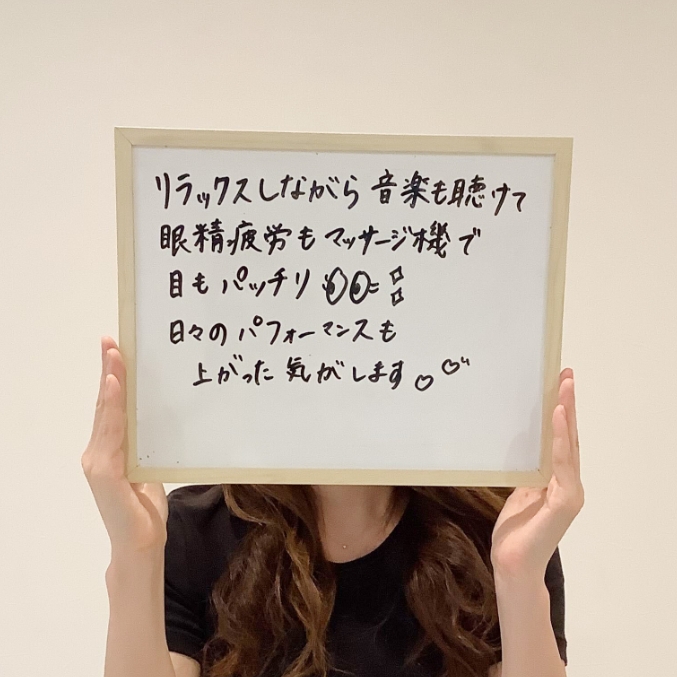 リラックスしながら音楽も聴けて
眼精疲労もマッサージ機で
目もパッチリ
日々のパフォーマンスも
上がった気がします。